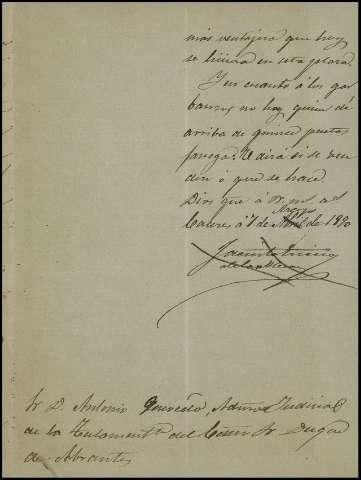 mas ventajosa que hoy
se hiciera en esta plaza.
Y en cuanto á los gar
banzos, no hay quien dé
arriba de quince pesetas
fanega. V. dirá si se ven
den ó que se hace
Dios gue á V. m.s a.s
Caceres á 7 de Mayo de 1890
Sr D. Antonio Adm.or Judicial
de la Testament.a del Sr Duque
de Abrantes